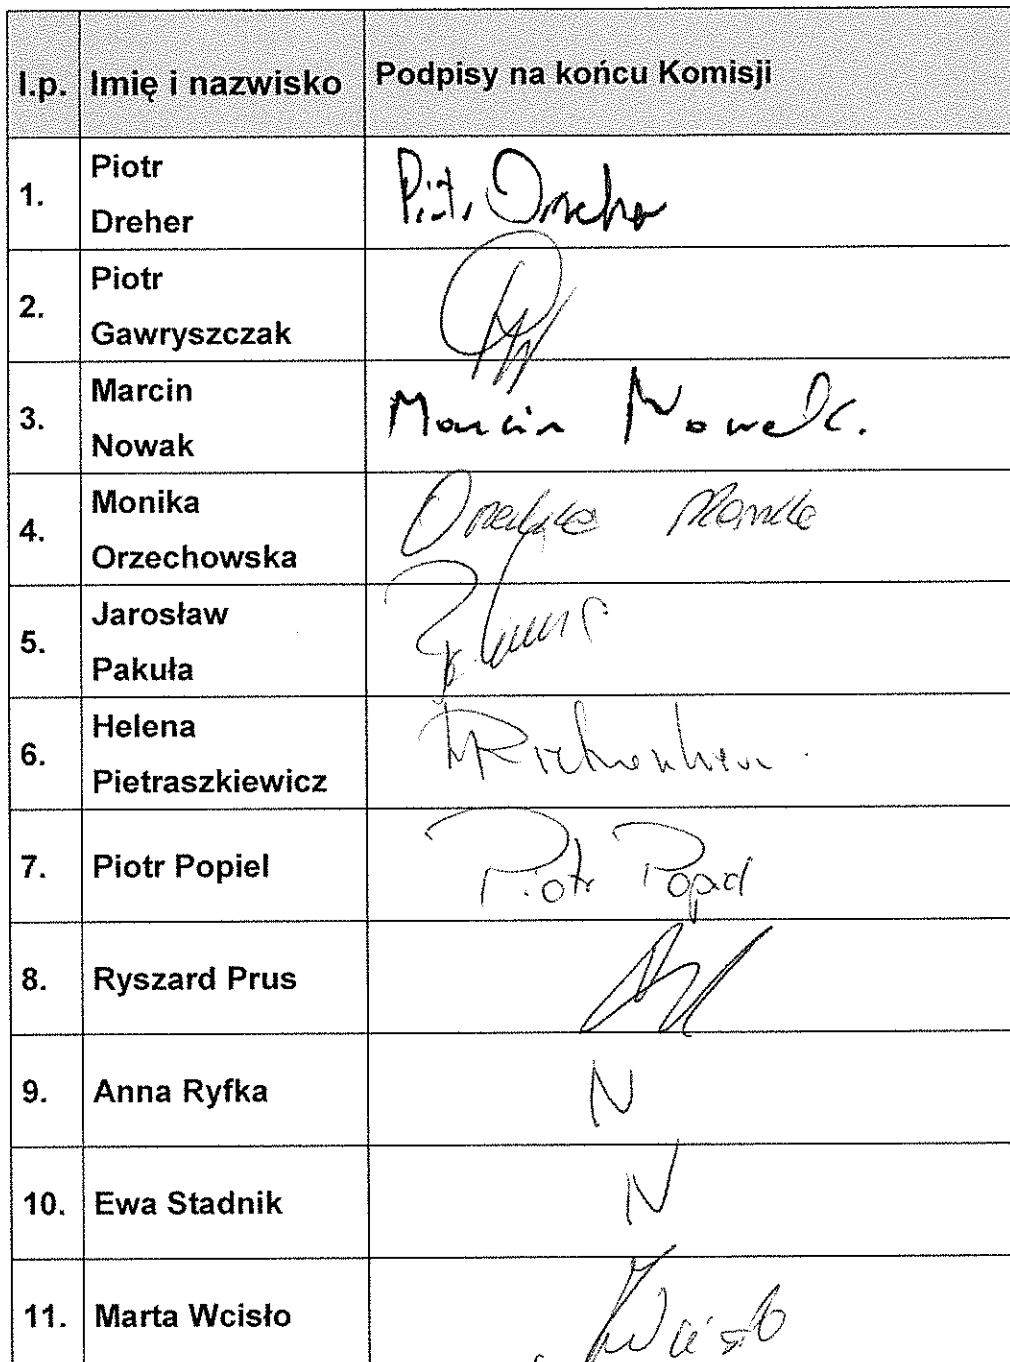 l.p. Imię i nazwisko Podpisy na końcu Komisji
1. Piotr
Dreher Piotr Dreher
2. Piotr
Gawryszczak
3. Marcin
Nowak Marcin Nowak.
4. Monika
Orzechowska
5. Jarosław
Pakuła
6. Helena
Pietraszkiewicz
7. Piotr Popiel Piotr Popiel
8. Ryszard Prus
9. Anna Ryfka N
10. Ewa Stadnik N
11. Marta Wcisło Wcisło